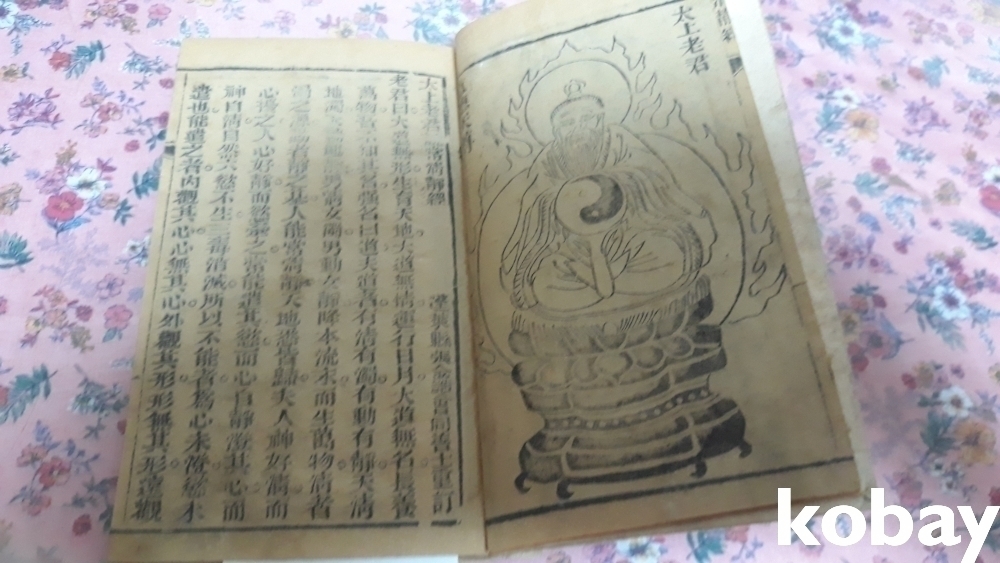 太上老君
清靜經
老君曰大道無形生育天地大道無情運行日月大道無名長養
萬物吾不知其名強名曰道夫道者有清有濁有動有靜天清
地濁天動地靜男清女濁男動女靜降本流末而生萬物清者
濁之源動者靜之基人能常清靜天地悉皆歸夫人神好清而
心擾之人心好靜而慾牽之常能遣其慾而心自靜澄其心而
神自清自然六慾不生三毒消滅所以不能者為心未澄慾未
遣也能遣之者內觀其心心無其心外觀其形形無其形遠觀
kobay